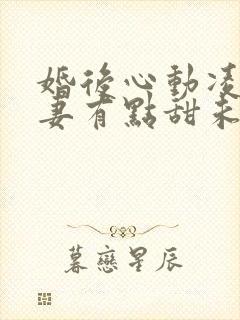 婚後心動凌
妻有點甜未
暮戀星辰